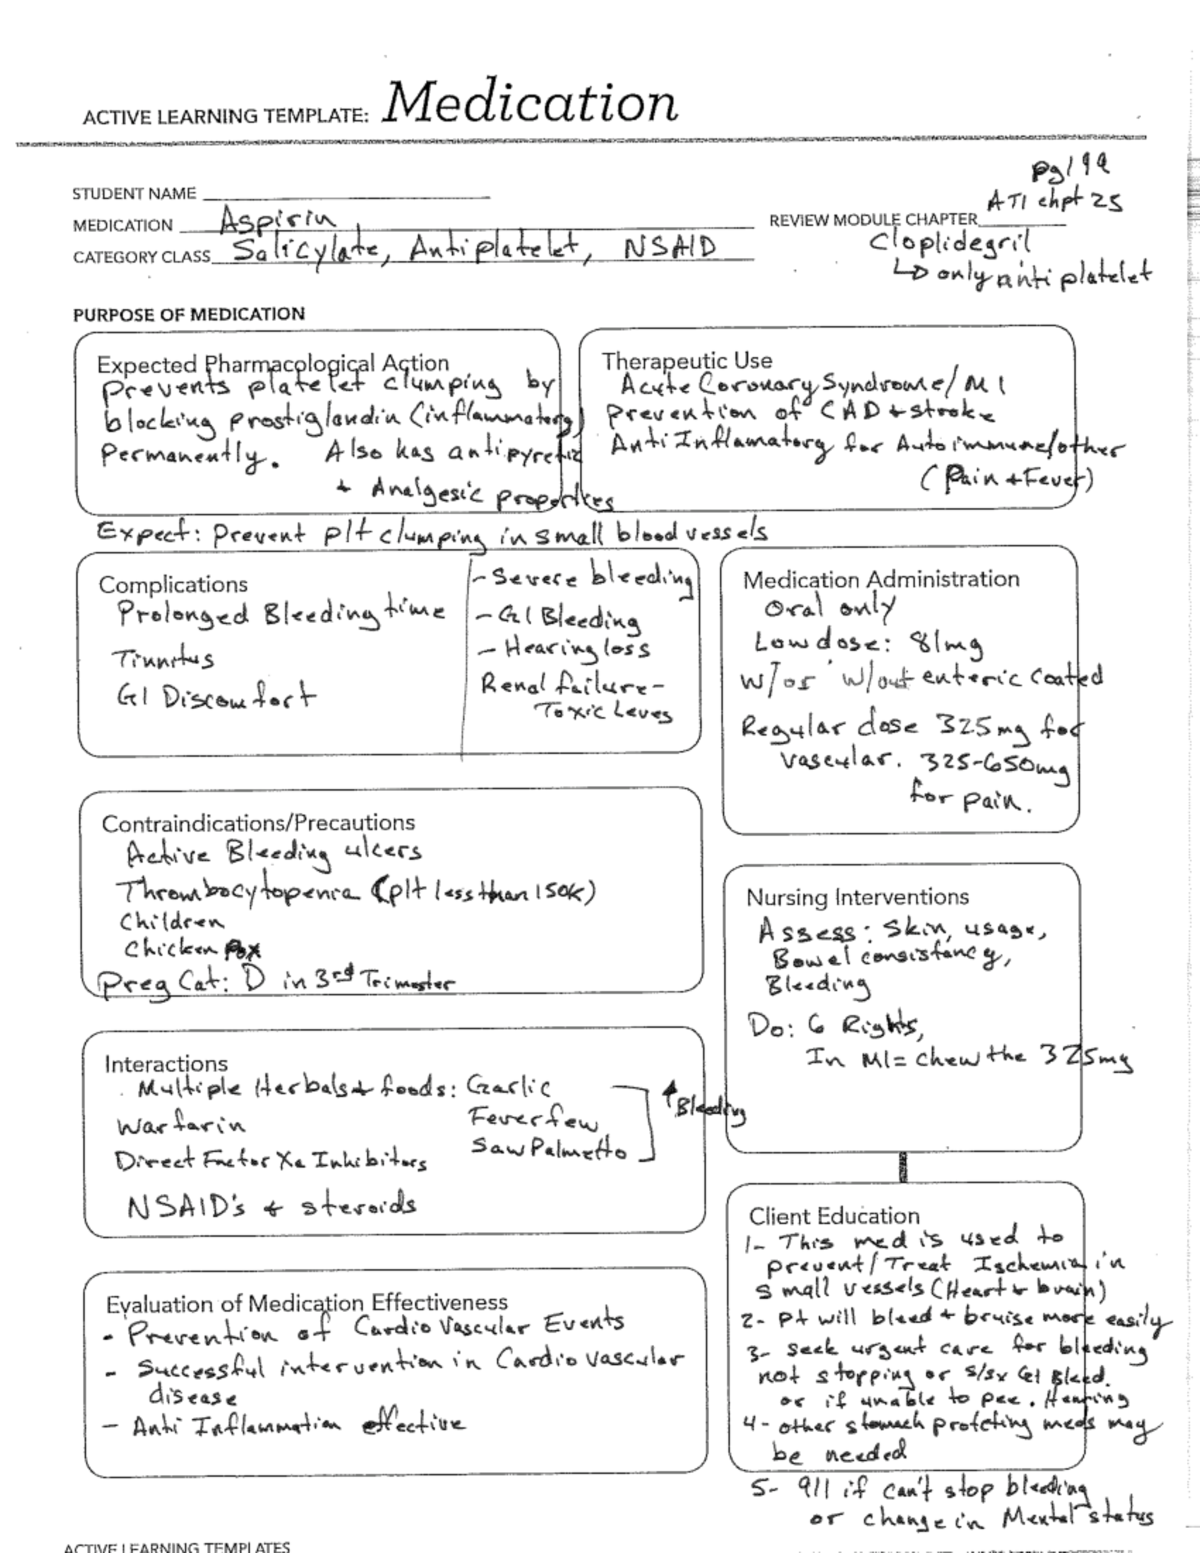 ACTIVE LEARNING TEMPLATE: Medication
pg 199
ATI chpt 25
STUDENT NAME
MEDICATION Aspirin
REVIEW MODULE CHAPTER
CATEGORY CLASS Salicylate, Antiplatelet, NSAID
Cloplidegril
↳ only antiplatelet
PURPOSE OF MEDICATION
Expected Pharmacological Action
Prevents platelet clumping by
blocking prostiglandin (inflammatory)
Permanently. Also has antipyretic
+ Analgesic properties
Expect: Prevent plt clumping in small blood vessels
Therapeutic Use
Acute Coronary Syndrome/MI
Prevention of CAD + stroke
Anti Inflamatory for Autoimmune/other
(Pain + Fever)
Complications
Prolonged Bleeding time
Tinnitus
GI Discomfort
- Severe bleeding
- GI Bleeding
- Hearing loss
Renal failure-
Toxic Leves
Medication Administration
Oral only
Low dose: 81mg
w/or w/out enteric coated
Regular dose 325mg for
vascular. 325-650mg
for pain.
Contraindications/Precautions
Active Bleeding ulcers
Thrombocytopenia (plt less than 150K)
Children
Chicken Pox
Preg Cat: D in 3rd Trimester
Nursing Interventions
Assess: Skin, usage,
Bowel consistancy,
Bleeding
Do: 6 Rights,
In MI= chew the 325mg
Interactions
Multiple Herbals + foods: Garlic
Feverfew
Saw Palmetto
↑ Bleeding
Warfarin
Direct Factor Xa Inhibitors
NSAID's + steroids
Client Education
1- This med is used to
prevent/Treat Ischemia in
small vessels (Heart + brain)
2- Pt will bleed + bruise more easily
3- seek urgent care for bleeding
not stopping or s/sx GI Bleed.
or if unable to pee. Hearing
4- other stomach protcting meds may
be needed
5- 911 if can't stop bleeding
or change in Mental status
Evaluation of Medication Effectiveness
- Prevention of Cardio Vascular Events
- Successful intervention in Cardiovascular
disease
- Anti Inflammation effective
ACTIVE LEARNING TEMPLATES